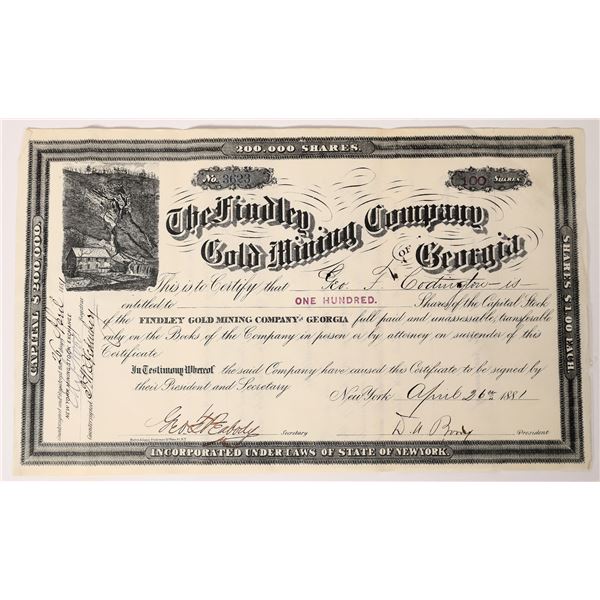 200.000 SHARES.
No. 3623
100 SHARES
The Findley
Gold Mining Company
OF Georgia
This is to Certify that Geo. F. Codington is
entitled to ONE HUNDRED. Shares of the Capital Stock
of the FINDLEY GOLD MINING COMPANY OF GEORGIA full paid and unassessable, transferable
only on the Books of the Company in person or by attorney on surrender of this
Certificate
In Testimony Whereof the said Company have caused this Certificate to be signed by
their President and Secretary
New York April 26th 1881
Secretary
President
INCORPORATED UNDER LAWS OF STATE OF NEW YORK.
CAPITAL $200,000.
SHARES $1.00 EACH.
Countersigned and Registered this
April 1881
NEW YORK MINING STOCK
Countersigned
Registrar